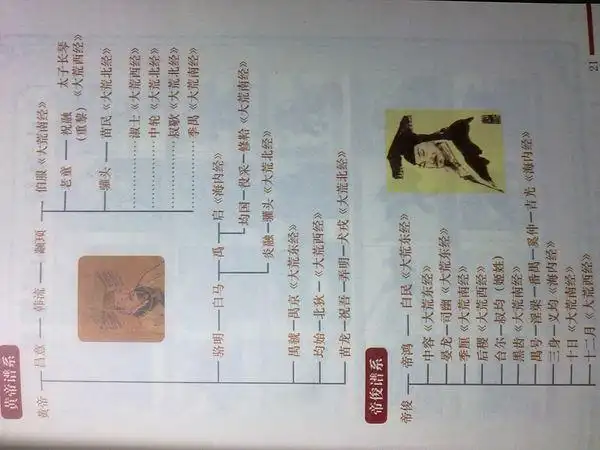 黄帝谱系
黄帝 — 昌意 — 韩流 — 颛顼 — 伯服《大荒南经》
老童 — 祝融 太子长琴
(重黎)《大荒西经》
驩头 — 苗民《大荒北经》
淑士《大荒西经》
中轮《大荒北经》
叔歜《大荒北经》
季禺《大荒南经》
骆明 — 白马 — 禹 — 启《海内经》
均国 — 役采 — 修鞈《大荒南经》
炎融 — 驩头《大荒北经》
禺虢 — 禺京《大荒东经》
均始 — 北狄 — 《大荒西经》
苗龙 — 祝吾 — 弄明 — 犬戎《大荒北经》
帝俊谱系
帝俊 — 帝鸿 — 白民《大荒东经》
中容《大荒东经》
晏龙 — 司幽《大荒东经》
季厘《大荒南经》
后稷《大荒西经》
台尔 — 叔均 (姬姓)
黑齿《大荒南经》
禺号 — 淫梁 — 番禺 — 奚仲 — 吉光《海内经》
三身 — 义均《海内经》
十日《大荒南经》
十二月《大荒西经》
21